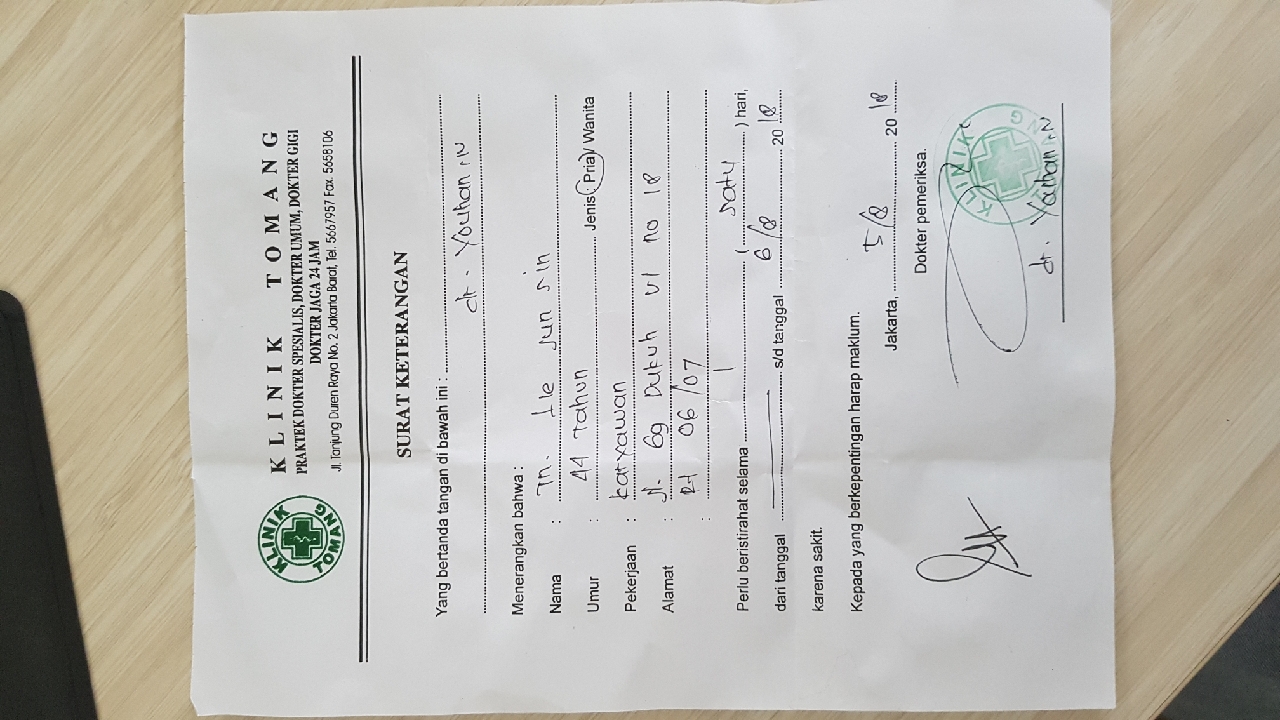 KLINIK TOMANG
KLINIK TOMANG
PRAKTEK DOKTER SPESIALIS, DOKTER UMUM, DOKTER GIGI
DOKTER JAGA 24 JAM
Jl. Tanjung Duren Raya No. 2 Jakarta Barat, Tel. 5667957 Fax. 5658106
SURAT KETERANGAN
Yang bertanda tangan di bawah ini :
dr. Youhan .N
Menerangkan bahwa :
Nama : Tn. Ile Jun Sin
Umur : 44 Tahun Jenis : Pria / Wanita
Pekerjaan : karyawan
Alamat : Jl. Gg Dukuh VI no 18
: Rt 06/07
Perlu beristirahat selama 1 ( satu ) hari,
dari tanggal — s/d tanggal 6/8 20 18
karena sakit.
Kepada yang berkepentingan harap maklum.
Jakarta, 5/8 20 18
Dokter pemeriksa.
KLINIK TOMANG
dr. Youhan .N